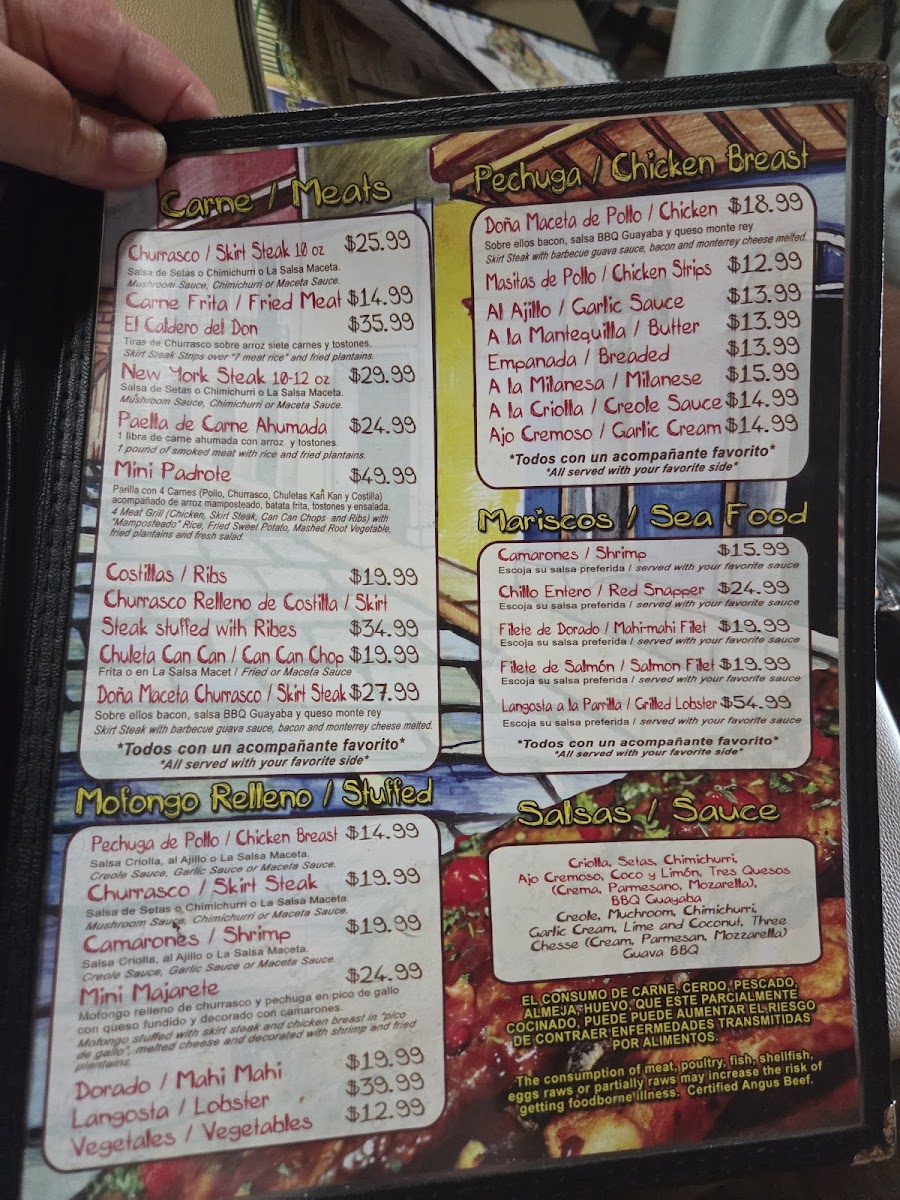 Carne / Meats
Churrasco / Skirt Steak 10 oz $25.99
Salsa de Setas o Chimichurri o La Salsa Maceta.
Mushroom Sauce, Chimichurri or Maceta Sauce.
Carne Frita / Fried Meat $14.99
El Caldero del Don $35.99
Tiras de Churrasco sobre arroz siete carnes y tostones.
Skirt Steak Strips over "7 meat rice" and fried plantains.
New York Steak 10-12 oz $29.99
Salsa de Setas o Chimichurri o La Salsa Maceta.
Mushroom Sauce, Chimichurri or Maceta Sauce.
Paella de Carne Ahumada $24.99
1 libra de carne ahumada con arroz y tostones.
1 pound of smoked meat with rice and fried plantains.
Mini Padrote $49.99
Parilla con 4 Carnes (Pollo, Churrasco, Chuletas Kan Kan y Costilla)
acompañado de arroz mamposteado, batata frita, tostones y ensalada.
4 Meat Grill (Chicken, Skirt Steak, Can Can Chops and Ribs) with
"Mamposteado" Rice, Fried Sweet Potato, Mashed Root Vegetable,
fried plantains and fresh salad.
Costillas / Ribs $19.99
Churrasco Relleno de Costilla / Skirt
Steak stuffed with Ribes $34.99
Chuleta Can Can / Can Can Chop $19.99
Frita o en La Salsa Macet / Fried or Maceta Sauce
Doña Maceta Churrasco / Skirt Steak $27.99
Sobre ellos bacon, salsa BBQ Guayaba y queso monte rey
Skirt Steak with barbecue guava sauce, bacon and monterrey cheese melted.
*Todos con un acompañante favorito*
*All served with your favorite side*
Mofongo Relleno / Stuffed
Pechuga de Pollo / Chicken Breast $14.99
Salsa Criolla, al Ajillo o La Salsa Maceta.
Creole Sauce, Garlic Sauce or Maceta Sauce.
Churrasco / Skirt Steak $19.99
Salsa de Setas o Chimichurri o La Salsa Maceta.
Mushroom Sauce, Chimichurri or Maceta Sauce.
Camarones / Shrimp $19.99
Salsa Criolla, al Ajillo o La Salsa Maceta.
Creole Sauce, Garlic Sauce or Maceta Sauce.
Mini Majarete $24.99
Mofongo relleno de churrasco y pechuga en pico de gallo
con queso fundido y decorado con camarones.
Mofongo stuffed with skirt steak and chicken breast in "pico
de gallo", melted cheese and decorated with shrimp and fried
plantains.
Dorado / Mahi Mahi $19.99
Langosta / Lobster $39.99
Vegetales / Vegetables $12.99
Pechuga / Chicken Breast
Doña Maceta de Pollo / Chicken $18.99
Sobre ellos bacon, salsa BBQ Guayaba y queso monte rey
Skirt Steak with barbecue guava sauce, bacon and monterrey cheese melted.
Masitas de Pollo / Chicken Strips $12.99
Al Ajillo / Garlic Sauce $13.99
A la Mantequilla / Butter $13.99
Empanada / Breaded $13.99
A la Milanesa / Milanese $15.99
A la Criolla / Creole Sauce $14.99
Ajo Cremoso / Garlic Cream $14.99
*Todos con un acompañante favorito*
*All served with your favorite side*
Mariscos / Sea Food
Camarones / Shrimp $15.99
Escoja su salsa preferida / served with your favorite sauce
Chillo Entero / Red Snapper $24.99
Escoja su salsa preferida / served with your favorite sauce
Filete de Dorado / Mahi-mahi Filet $19.99
Escoja su salsa preferida / served with your favorite sauce
Filete de Salmón / Salmon Filet $19.99
Escoja su salsa preferida / served with your favorite sauce
Langosta a la Parrilla / Grilled Lobster $54.99
Escoja su salsa preferida / served with your favorite sauce
*Todos con un acompañante favorito*
*All served with your favorite side*
Salsas / Sauce
Criolla, Setas, Chimichurri,
Ajo Cremoso, Coco y Limón, Tres Quesos
(Crema, Parmesano, Mozarella),
BBQ Guayaba
Creole, Muchroom, Chimichurri,
Garlic Cream, Lime and Coconut, Three
Chesse (Cream, Parmesan, Mozzarella)
Guava BBQ
EL CONSUMO DE CARNE, CERDO, PESCADO,
ALMEJA, HUEVO, QUE ESTE PARCIALMENTE
COCINADO, PUEDE PUEDE AUMENTAR EL RIESGO
DE CONTRAER ENFERMEDADES TRANSMITIDAS
POR ALIMENTOS.
The consumption of meat, poultry, fish, shellfish,
eggs raws or partially raws may increase the risk of
getting foodborne illness. Certified Angus Beef.